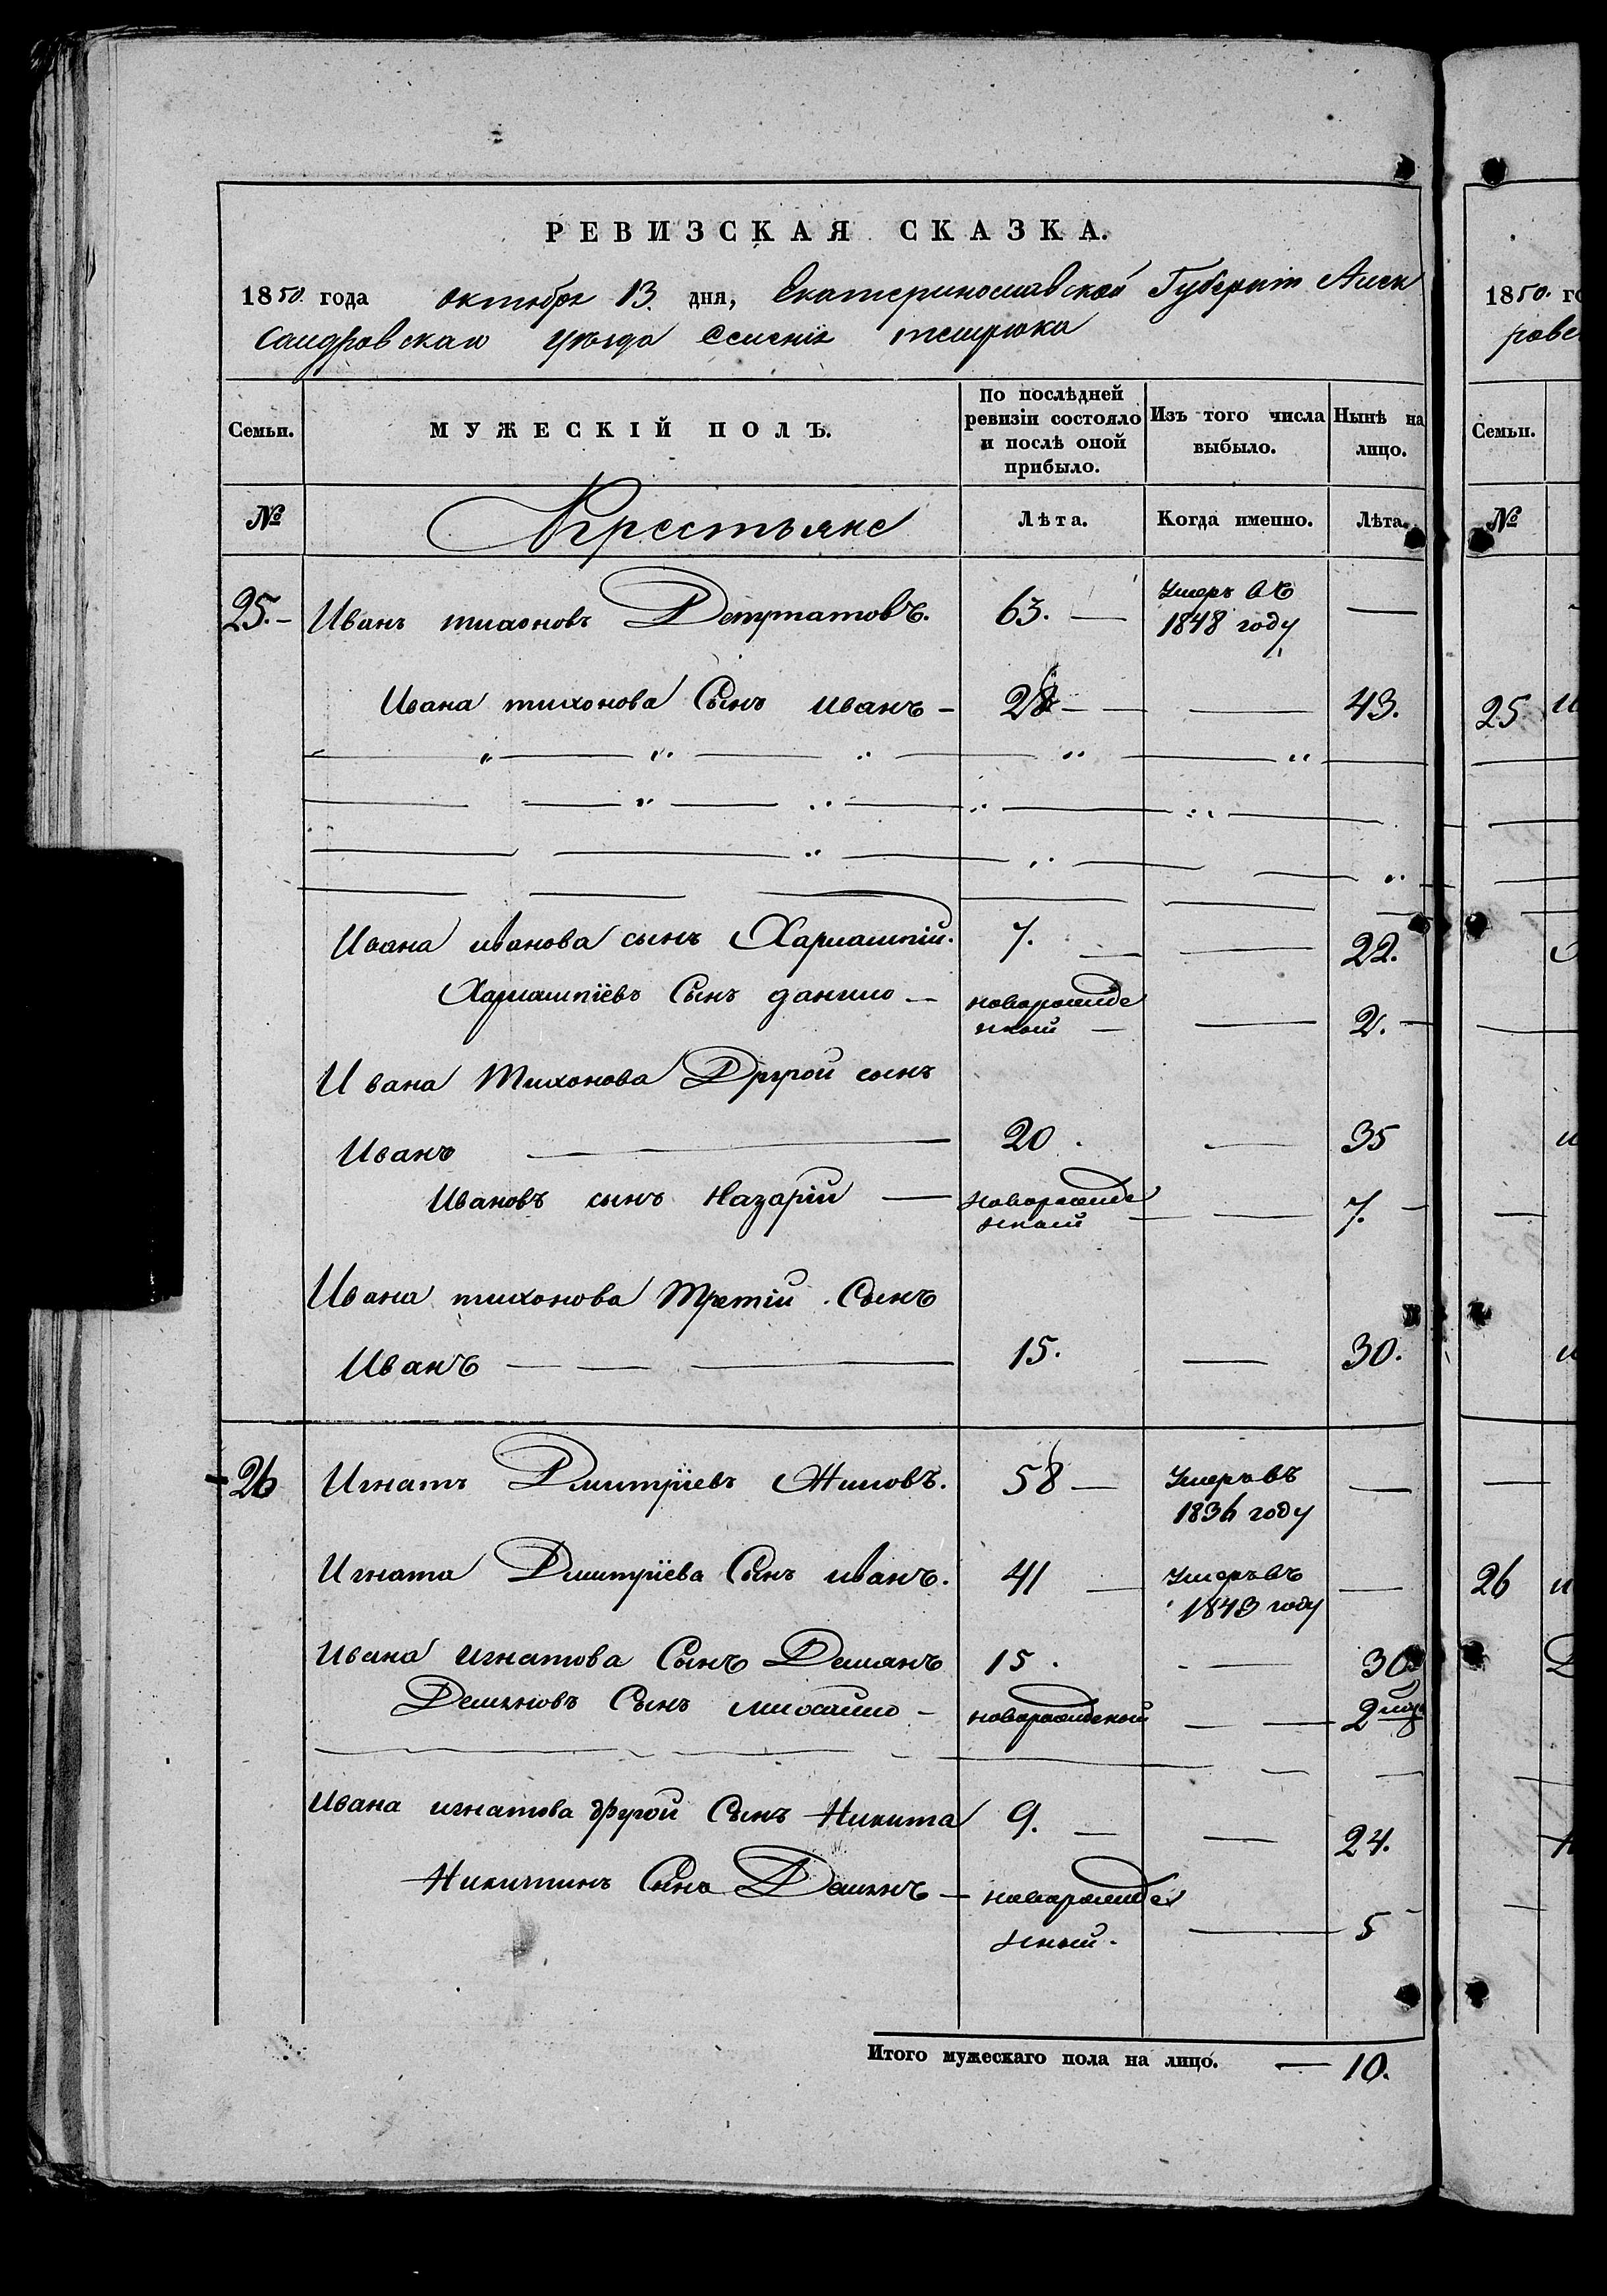 РЕВИЗСКАЯ СКАЗКА.
1850 года октября 13 дня, Екатеринославской Губерніи Алек
сандровскаго уѣзда Селенія темрюка
Семьи. МУЖЕСКІЙ ПОЛЪ. По послѣдней ревизіи состояло и послѣ оной прибыло. Изъ того числа выбыло. Нынѣ на лицо.
№ Крестьяне Лѣта. Когда именно. Лѣта.
25. Иванъ тихоновъ Депутатовъ. 63. — Умеръ въ 1848 году —
Ивана тихонова Сынъ иванъ — 28 — — 43.
Ивана иванова сынъ Харлампій. 7. — — 22.
Харлампіевъ Сынъ данило — новорожде
нный — — 2. —
Ивана Тихонова Другой сынъ
Иванъ — 20. — 35
Ивановъ сынъ Назарій — новорожде
нный — — 7. —
Ивана тихонова Третій Сынъ
Иванъ — — — 15. — 30.
26 Игнатъ Дмитріевъ Жиловъ. 58 — Умеръ въ 1836 году —
Игната Дмитріева Сынъ иванъ. 41 — Умеръ въ 1843 году —
Ивана игнатова Сынъ Демянъ 15. — 30
Демяновъ Сынъ михайло — новорожденный — — 2
Ивана игнатова другой Сынъ Никита 9. — — 24.
Никитинъ Сынъ Демянъ — новорожде
нный. — 5
Итого мужескаго пола на лицо. — 10.
1850. го
ровс
Семьи.
№
25
26